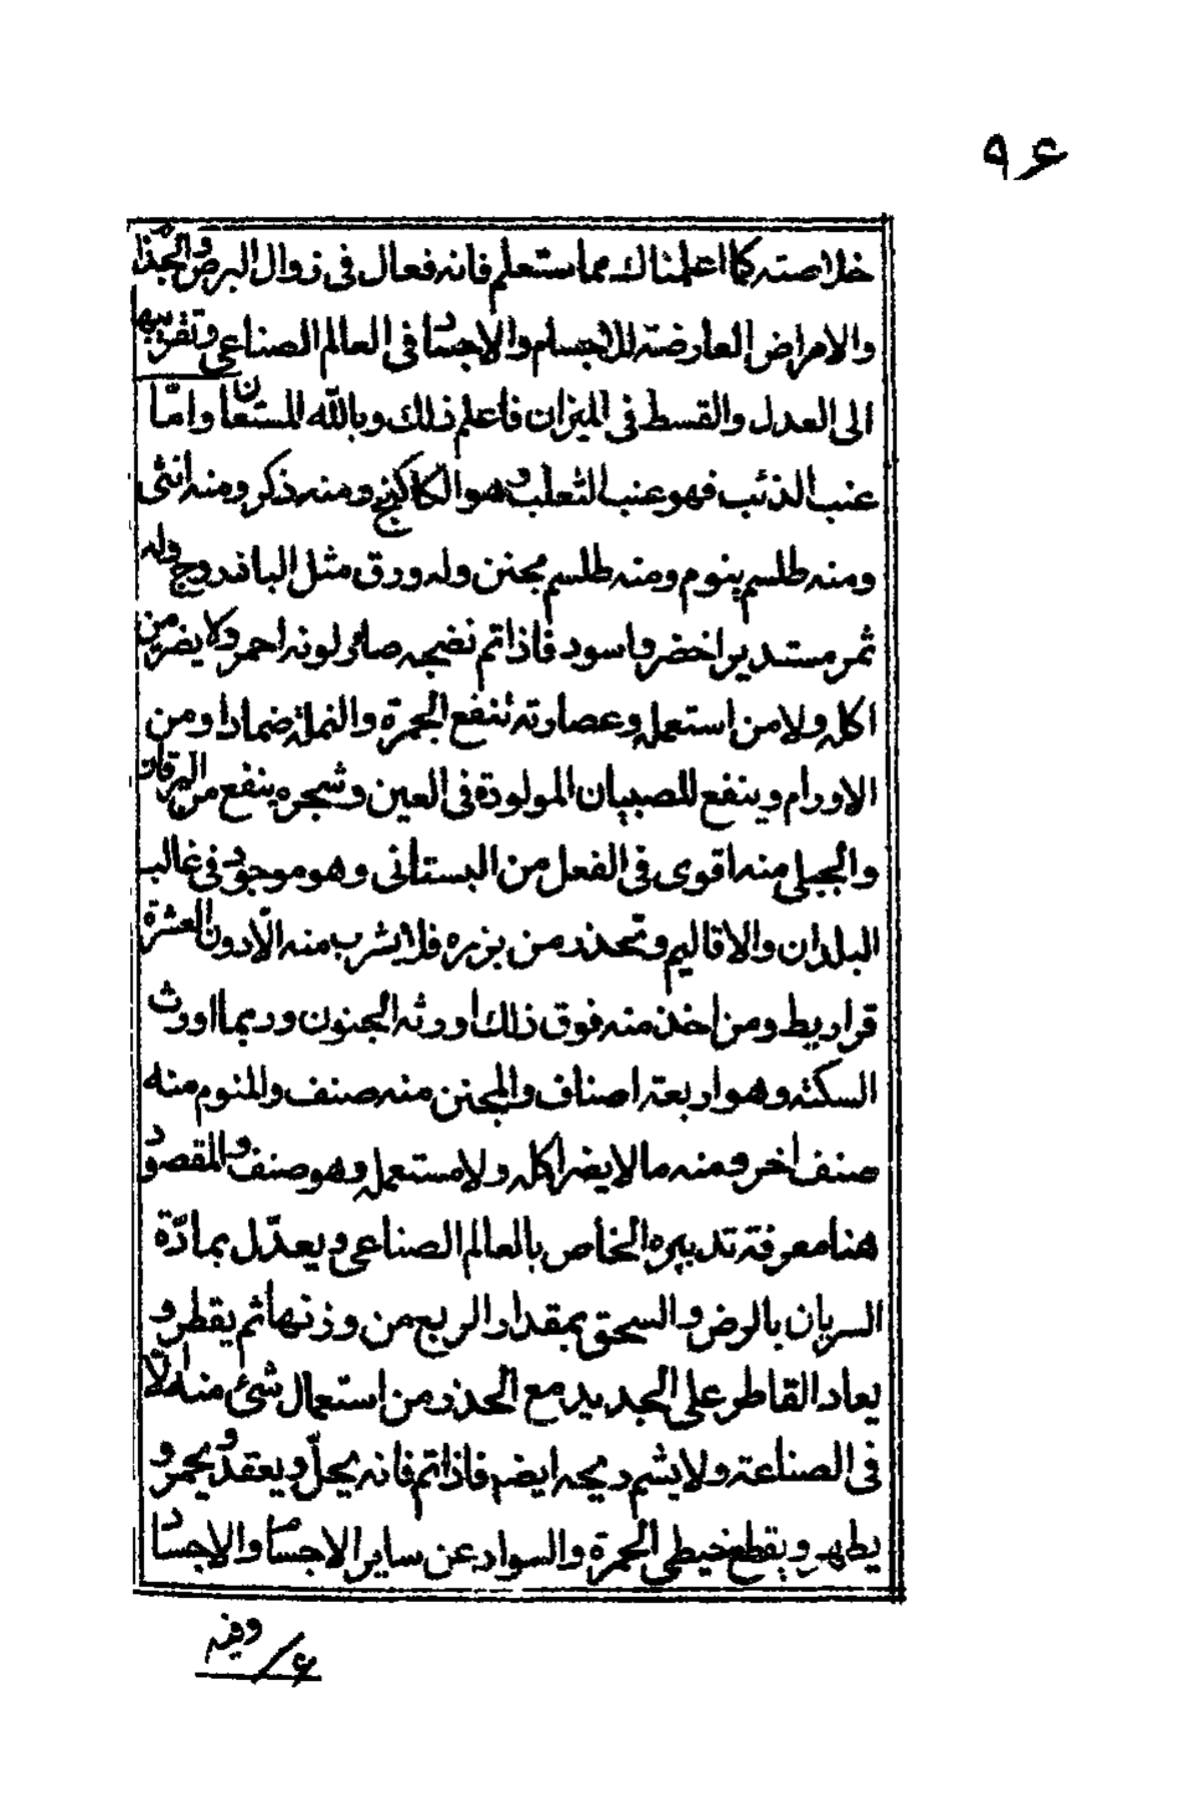 ٩٤
خلاصته كما اعلمناك مما ستعلم فانه فعال فى زوال البرص والجذام
والامراض العارضة للاجسام والاجساد فى العالم الصناعى وتقريبها
الى العدل والقسط فى الميزان فاعلم ذلك وبالله المستعان وامّا
عنب الذئب فهو عنب الثعلب وهو الكاكنج ومنه ذكر ومنه انثى
ومنه طلسم ينوم ومنه طلسم مجنن وله ورق مثل الباذروج وله
ثمر مستدير اخضر واسود فاذا تم نضجه صار لونه احمر ولا يضر من
اكله ولا من استعمله وعصارته تنفع الجمرة والنملة ضمادا ومن
الاورام وينفع للصبيان المولودة فى العين وشجره ينفع من اليرقان
والجبلى منه اقوى فى الفعل من البستانى وهو موجود فى غالب
البلدان والاقاليم وتحذر من بزره فلا يشرب منه الّا دون العشرة
قراريط ومن اخذ منه فوق ذلك اورثه الجنون وربما اورث
السكتة وهو اربعة اصناف والمجنن منه صنف والمنوم منه
صنف اخر ومنه ما لا يضر اكله ولا مستعمله وهو صنف والمقصود
هنا معرفة تدبيره الخاص بالعالم الصناعى ويعدّل بمادّة
السريان بالرض والسحق بمقدار الربع من وزنها ثم يقطر و
يعاد القاطر على الجديد مع الحذر من استعمال شئ منه الّا
فى الصناعة ولا يشم ريحه ايضا فاذا تم فانه يحلّ ويعقد ويحمر و
يطهر ويقطع خيطى الحمرة والسواد عن ساير الاجسام والاجساد
وفيه